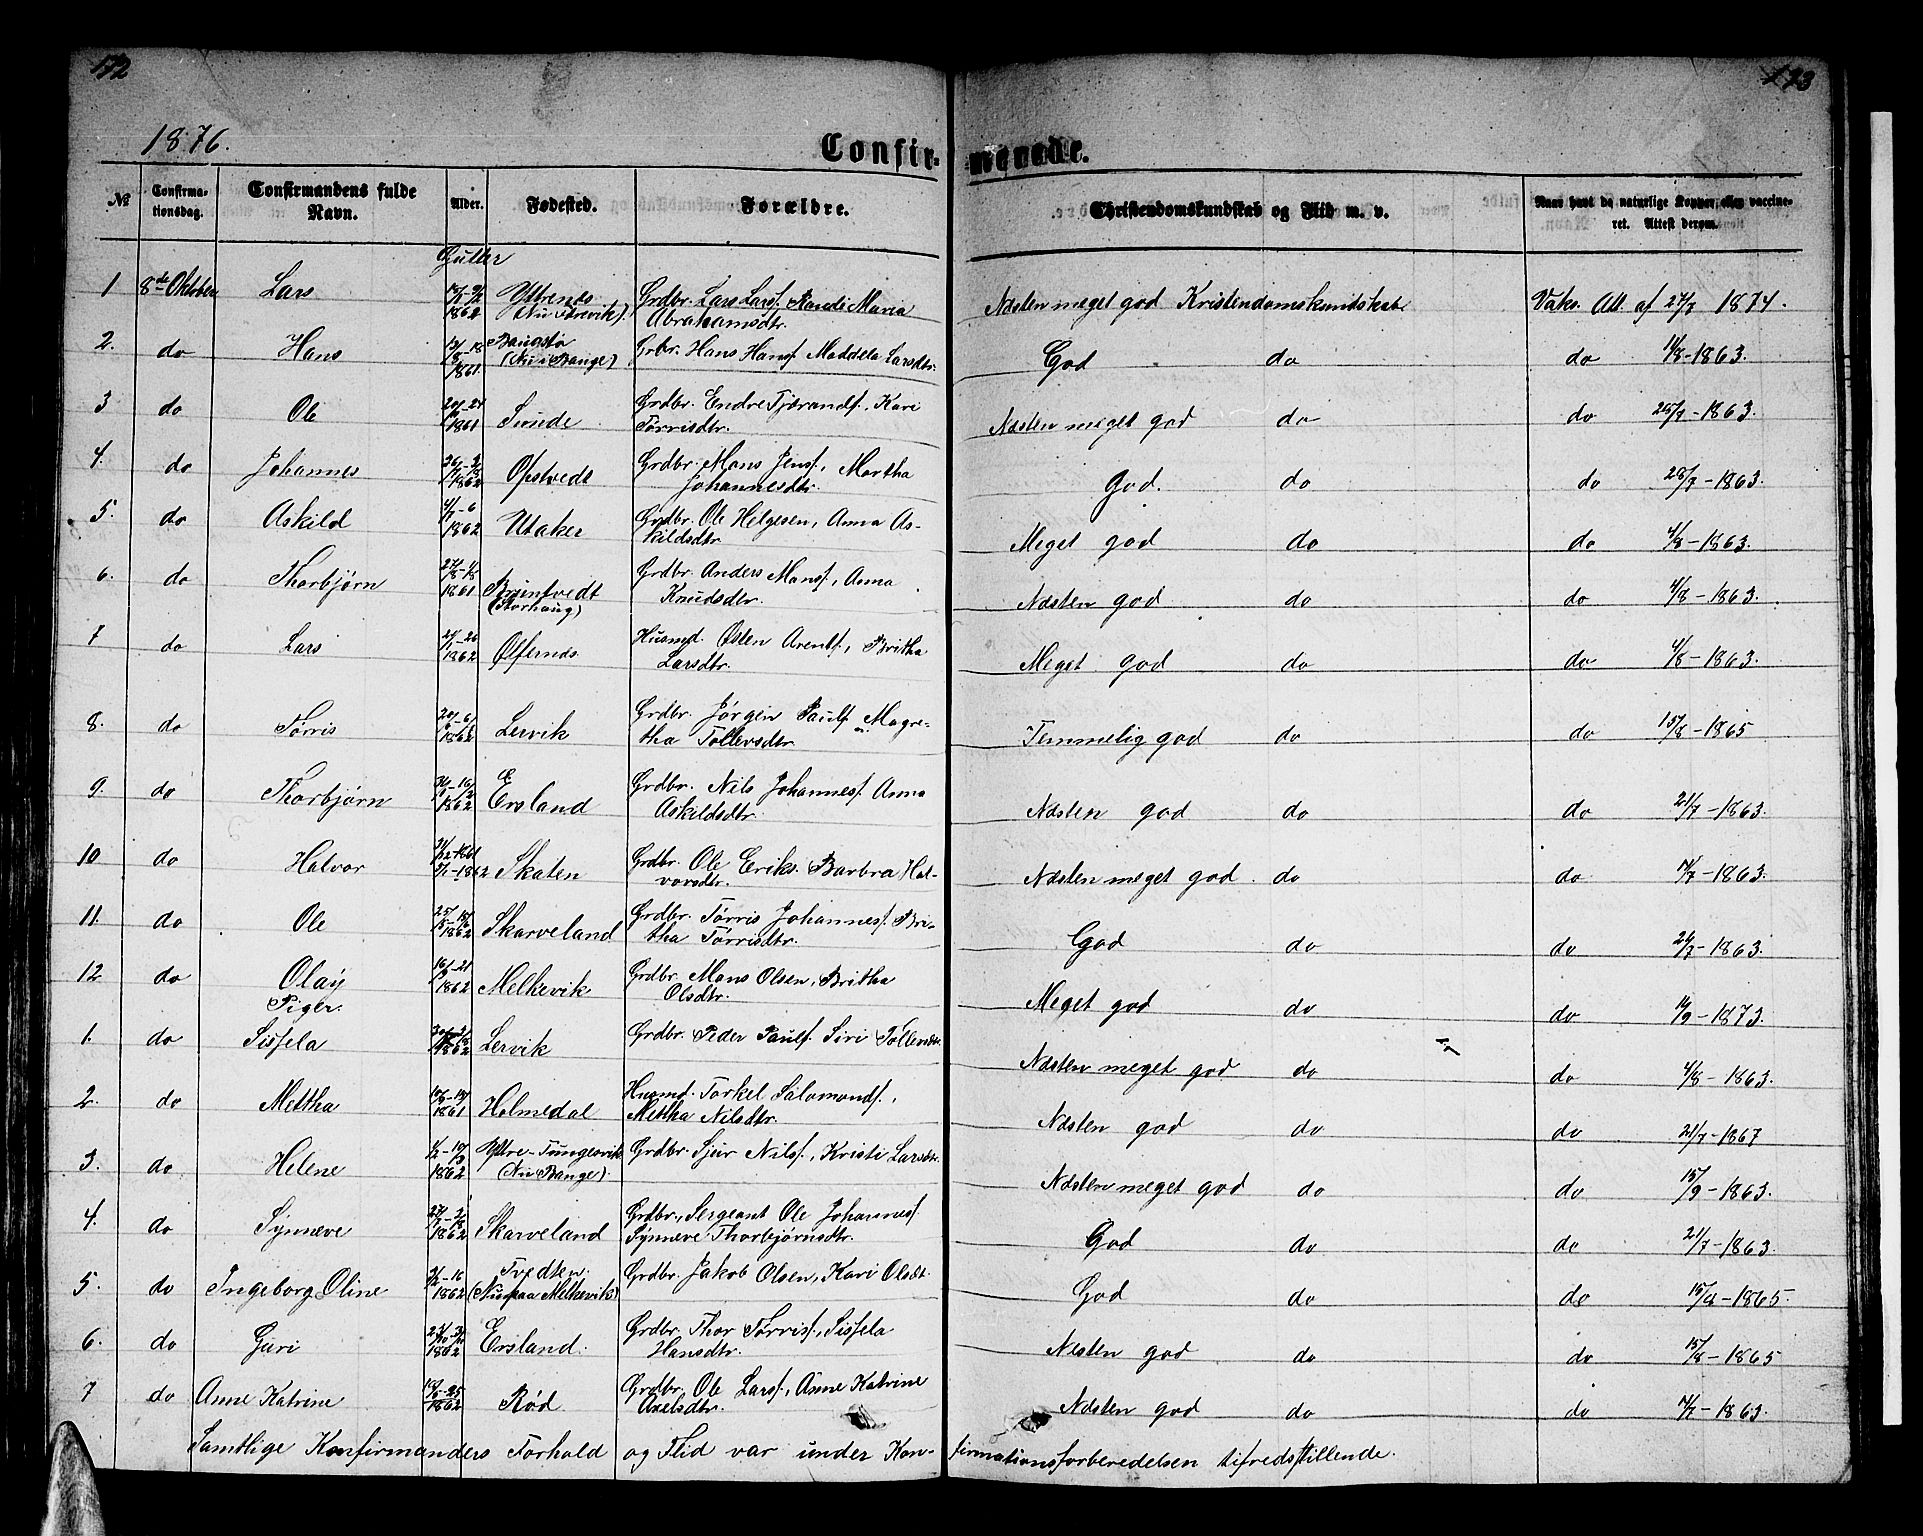 172
173
1876.
Confir- merede.
No Confirma-tionsdag. Confirmandens fulde Navn. Alder. Fødested. Forældre. Christendomskundskab og Flid m. v. Naar havt de naturlige Kopper, eller vaccine-ret. Attest derom.
Gutter
1 8de Oktober Lars 1862 Ytrenes Grdbr. Lars Larsf. Randi Maria Abrahamsdtr. Næsten meget god Kristendomskundskab Vaks. Att. af 27/7 1874.
2. do Hans 1861 (Nu i Bange) Grbr. Hans Hansf. Maddela Larsdtr. God do do 4/8-1863.
3 do Ole 1861 Sunde Grdbr. Endre Tjerandsf., Kari Tørrisdtr. Næsten meget god do do 25/7-1863.
4. do Johannes 1862 Opstvedt Grdbr. Mons Jensf., Martha Johannesdtr. God. do do 28/7-1863.
5. do Askild 1862 Utaker Grdbr. Ole Helgesen, Anna As-kildsdtr. Meget god do do 4/8-1863.
6. do Thorbjørn 1861 (Storhaug) Grdbr. Anders Monsf., Anna Knudsdtr. Næsten god do do 4/8-1863.
7 do Lars 1862 Ølfernes Husmd. Østen Arentsf., Britha Larsdtr. Meget god do do 4/8-1863.
8. do Tørris 1862 Lervik Grdbr. Jørgen Paulsf. Magre-tha Tollevsdtr. Temmelig god do do 15/8-1865
9. do Thorbjørn 1862 Ersland Grdbr. Nils Johannesf. Anna Askildsdtr. Næsten god do do 21/7-1863.
10 do Halvor 1862 Skaten Grdbr. Ole Eriks. Barbra Hal-vorsdtr. Næsten meget god. do do 7/7-1863.
11. do Ole 1862 Skarveland Grdbr. Tørris Johannesf. Bri-tha Tørrisdtr. God do do 24/7-1863.
12 do Olay 1862 Melkevik Grdbr. Mons Olsen, Britha Olsdtr. Meget god do do 14/9-1873.
Piger.
1. do Sissela 1862 Lervik Grdbr. Peder Paulsf. Siri Tollevsdtr. Næsten meget god do do 4/8-1863.
2. do Mettha 1861 Holmedal Husmd. Torkel Salomonsf., Mettha Nilsdtr. Næsten god do do 21/7-1867
3. do Helene 1862 Ytre-Tungesvik (Nu Bange). Grdbr. Sjur Nilsf., Kristi Larsdtr. Næsten meget god do do 15/9-1863.
4. do Synneve 1862 Skarveland Grdbr., Sergeant Ole Johannesf. Synneve Thorbjørnsdtr. God do do 21/7-1863.
5. do Ingeborg Oline 1862 Tvedten. (Nu paa Melkevik) Grdbr. Jakob Olsen, Kari Olsdt. God do do 15/8-1865.
6. do Guri 1862 Ersland. Grdbr. Thor Tørrisf., Sissela Hansdtr. Næsten god do do 15/8-1865
7 do Anne Katrine 1862 Rød Grdbr. Ole Larsf., Anne Katrine Axelsdtr. Næsten god do do 7/7-1863.
Samtlige Konfirmanders Forhold og Flid var under Kon- firmationsforberedelsen tifredsstillende.